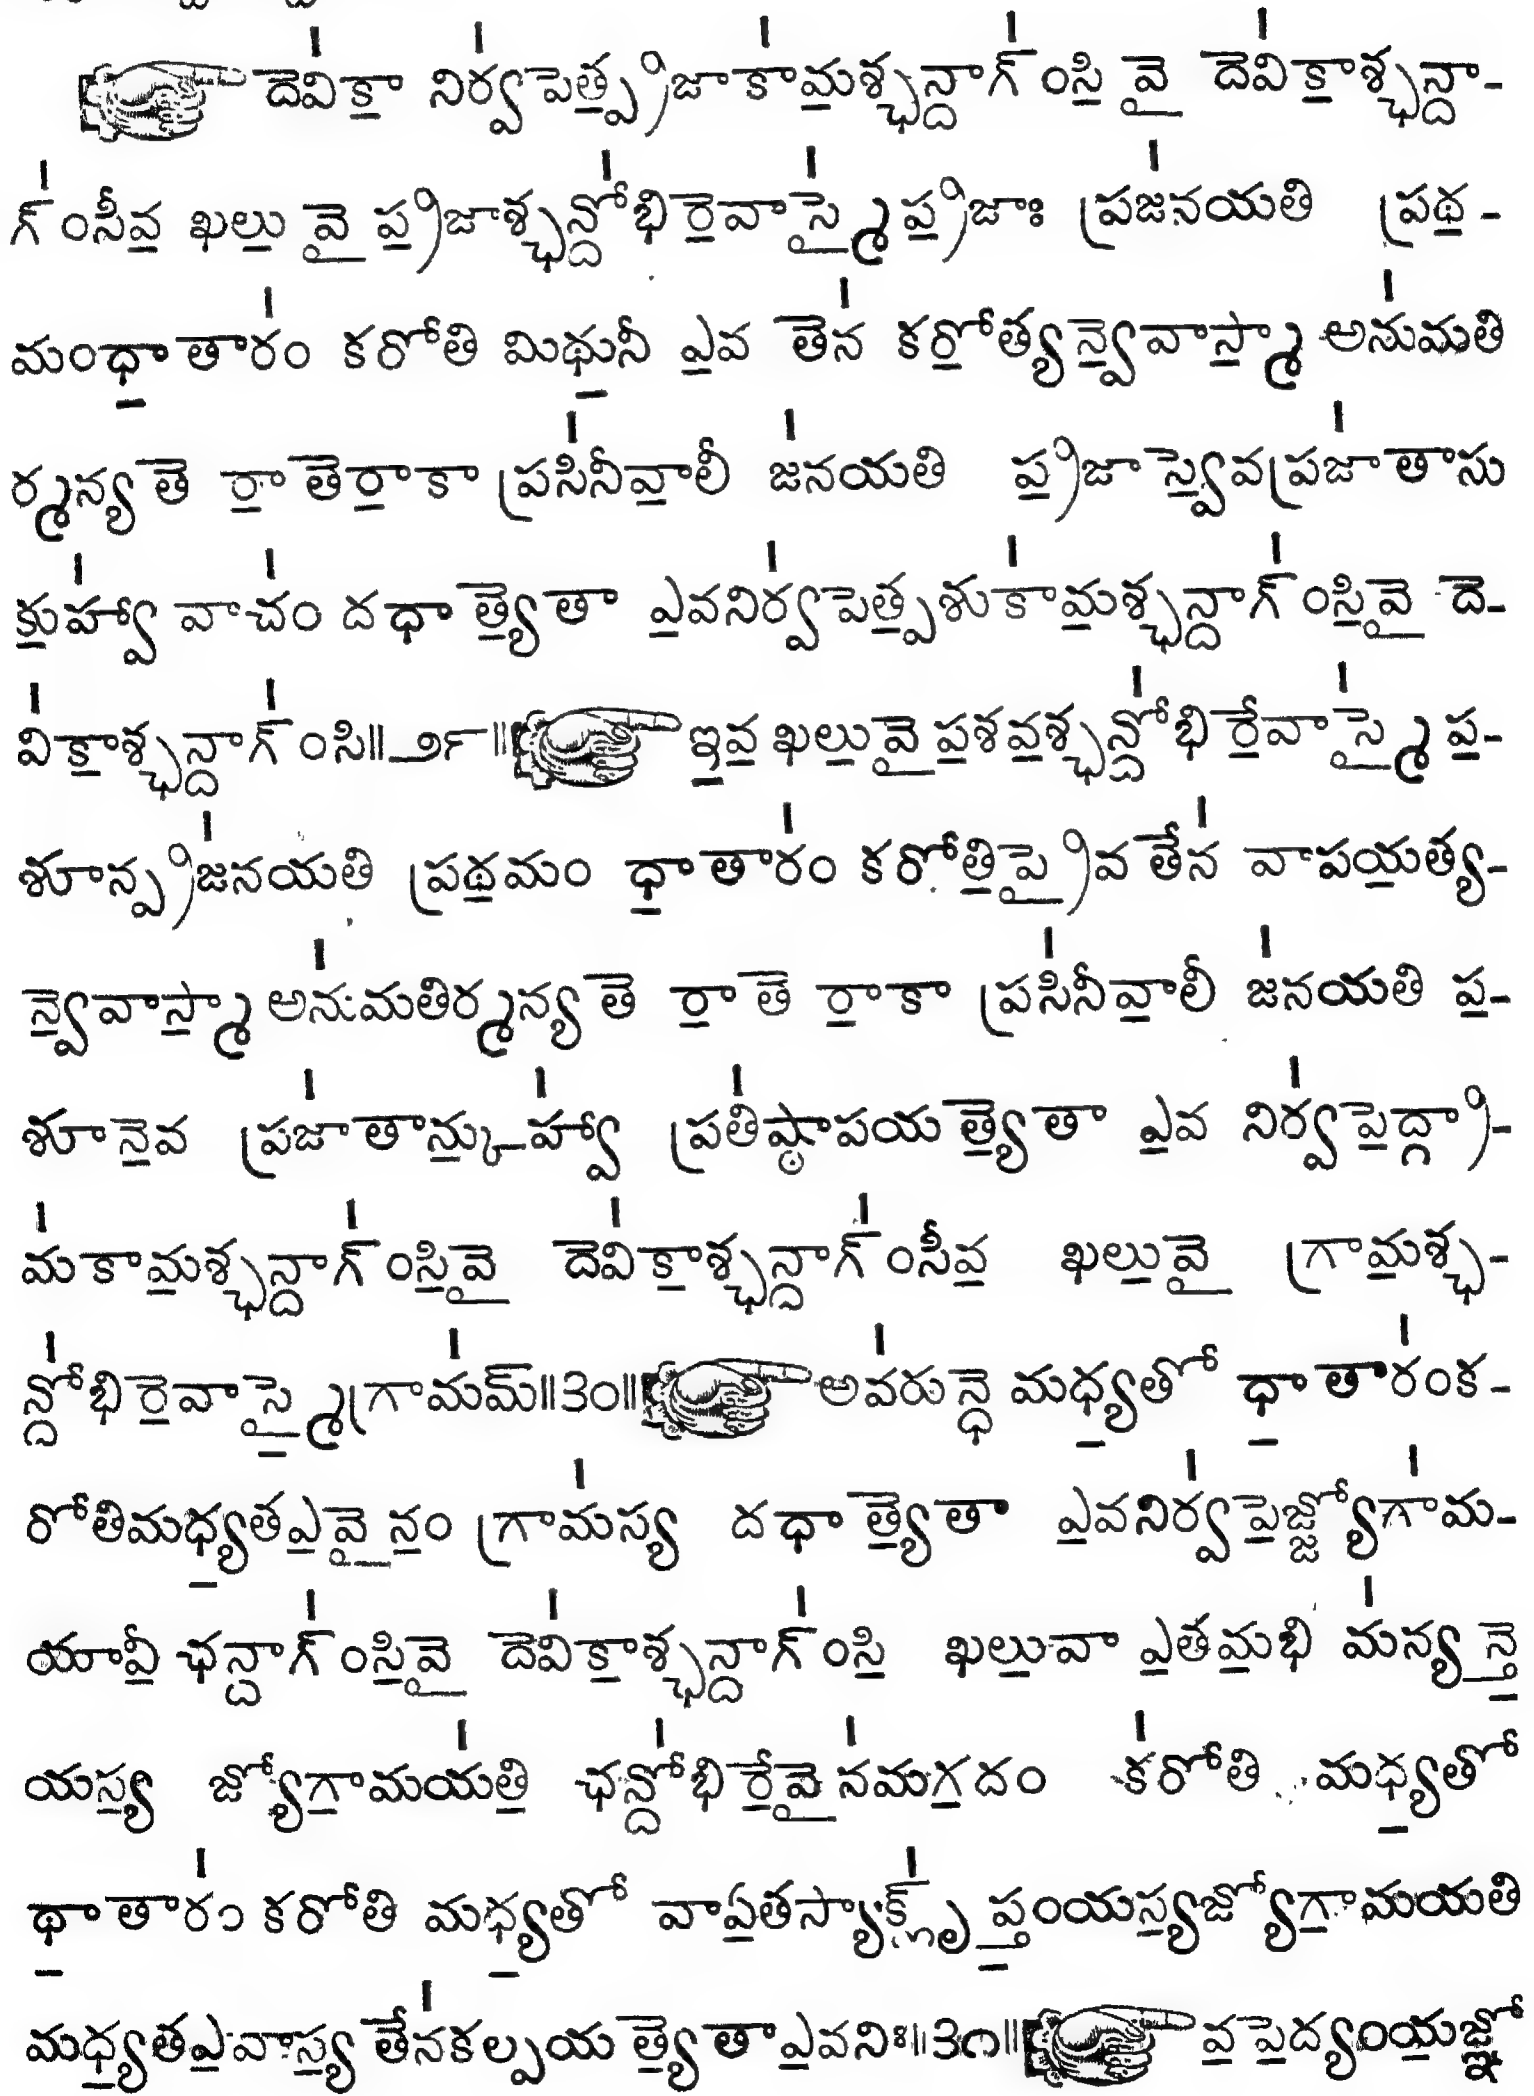 దెవి॑కా నిర్వ॑పెత్ప్ర॒జాకా॑మ॒శ్ఛన్దాగ్॑ంసి॒ వై దెవి॑కా॒శ్ఛన్దా-
గ్॑ంసీవ॒ ఖలు॒ వై ప్ర॒జాశ్ఛన్దో॑భిరె॒వాస్మై॑ ప్ర॒జాః ప్రజ॑నయతి ప్రథ॒-
మంధా॒తారం॑ కరోతి మిథు॒నీ ఎ॒వ తెన॑ కరో॒త్యన్వె॒వాస్మా॒ అను॑మతి
ర్మన్యతె రా॒తెరా॒కా ప్రసి॑నీవా॒లీ జ॑నయతి ప్ర॒జాస్వె॒వప్రజా॑తాసు
కు॒హ్వా॑ వాచం॑ దధాత్యె॒తా ఎ॒వనిర్వ॑పెత్ప॒శుకా॑మ॒శ్ఛన్దాగ్॑ంసి॒వై దె-
వి॑కా॒శ్ఛన్దాగ్॑ంసి॥౨౯॥ ఇ॒వ॒ ఖలు॒వై ప॒శవ॒శ్ఛన్దో॑భిరే॒వాస్మై॑ ప॒-
శూన్ప్రజ॑నయతి ప్రథ॒మం ధా॒తారం॑ కరోతి॒ ప్రై॒వ తేన॑ వాపయ॒త్య-
న్వె॒వాస్మా॒ అను॑మతిర్మన్యతె రా॒తె రా॒కా ప్రసి॑నీవా॒లీ జ॑నయతి ప॒-
శూనె॒వ ప్రజా॑తాన్కు॒హ్వా॑ ప్రతి॑ష్ఠాపయత్యె॒తా ఎ॒వ నిర్వ॑పె॒ద్గ్రా-
మ॑కామ॒శ్ఛన్దాగ్॑ంసి॒వై దెవి॑కా॒శ్ఛన్దాగ్॑ంసీవ॒ ఖలు॒వై గ్రామ॒శ్ఛ-
న్దో॑భిరె॒వాస్మై॒ గ్రామ॑మ్॥౩౦॥ అవ॑రున్ధె మధ్య॒తో ధా॒తారం॑క-
రోతిమధ్య॒తఎ॒వై॒నం॒ గ్రామ॑స్య దధాత్యె॒తా ఎ॒వనిర్వ॑పె॒జ్జ్యోగా॑మ-
యావీ॒ ఛన్దాగ్॑ంసి॒వై దెవి॑కా॒శ్ఛన్దాగ్॑ంసి॒ ఖలు॒వా ఎ॒తమ॒భి మ॑న్యన్తె॒
యస్య॒ జ్యోగా॒మయ॑తి॒ ఛన్దో॑భిరే॒వైన॑మగ॒దం క॑రోతి మధ్య॒తో
థా॒తారం॑ కరోతి మధ్య॒తో వాఏ॒తస్యాక్లృ॑ప్తం॒యస్య॒జ్యోగా॒మయతి
మధ్య॒తఎ॒వాస్య॒ తేన॑కల్పయత్యె॒తాఎ॒వనిః॥౩౧॥ వ॒పె॒ద్యంయ॒జ్ఞో